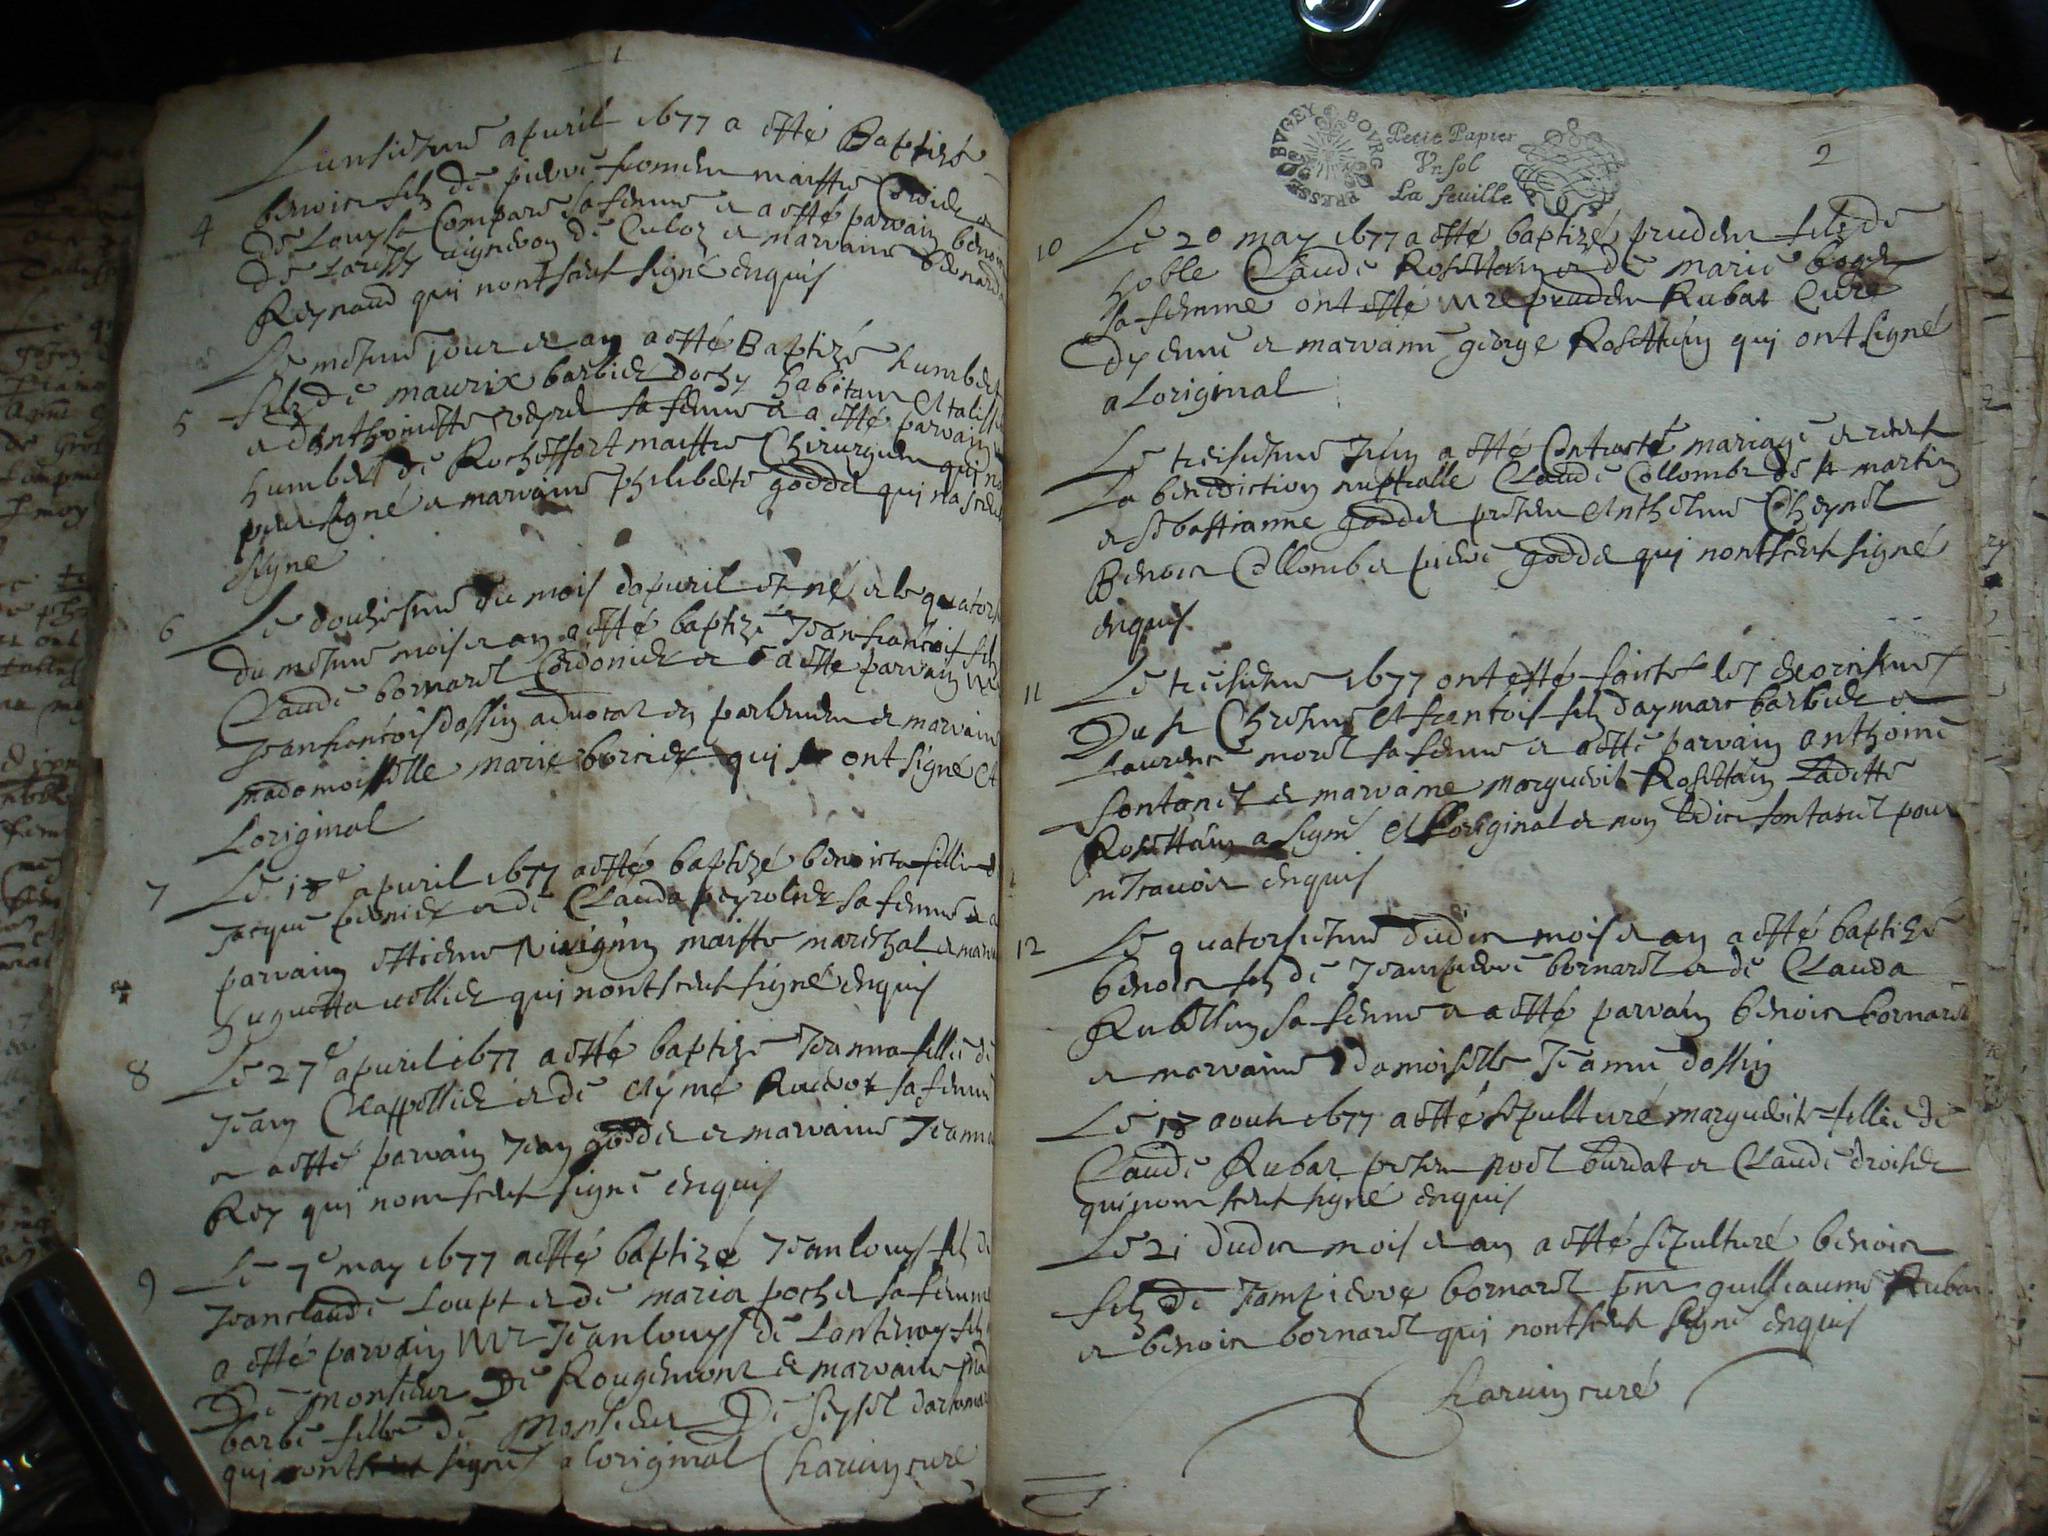 1
Lunsiesme apuril 1677 a esté Baptizé
4 benoict filz de pierre maistre
de Louysa Compare sa femme et a esté parvain benoict
de Culoz et marvaine benarda
Reynaud qui nont sceut signé enquis
Le mesme jour et an a esté Baptizé humbert
5 filz de maurix barbier dochy habitant a talissieu
et danthoinette sa femme et a esté parvain
humbert de Rocheffort maistre Chirurgien qui na
peu signé et marvaine philiberte godde qui na sceut
signe
6 Le douziesme du mois dapuril est né et le quator
du mesme mois et an a esté baptizé Jeanfrancois filz
Claude bornard Cordonier et a esté parvain Mre
Jeanfrancois dossin advocat en parlement et marvaine
madamoiselle marie borcier qui ont signé a
Loriginal
7 Le 18e apuril 1677 a esté baptizé benoicta fillie d
Jacque et de Clauda peyrolier sa femme et a
parvain estienne maistre mareschal et marv
hugueta collier qui nont sceut signé enquis
8 Le 27e apuril 1677 a esté baptizé Jeanna fillie de
Jean Clappellier et de Aymé sa femme
et a esté parvain Jean godde et marvaine Jeanna
Rey qui nont sceut signé enquis
9 Le 7e may 1677 a esté baptizé Jeanlouys filz de
Jeanclaude Loupt et de maria pochet sa femme
a esté parvain Mre Jeanlouys de Lantenay filz
De monsieur De Rougemont et marvaine mad
barbe fillie de monsieur De Seyssel dartema
qui ont signé a loriginal Charvin curé
BVGEY BOVRG PRESSE
Petit Papier
Vn sol
La feuille
2
10 Le 20 may 1677 a esté baptizé prudent filz de
noble Claude Rosettain et de marie
sa femme ont esté Mre prudent Rubat Curé
dyenne et marvaine george Rosettain qui ont signé
a Loriginal
Le treisiesme Juin a esté Contracté mariage et receu
La benediction nuptialle Claude Collomb de st martin
et sebastianne godde present Anthelme Cheynel
Benoict Collomb et pierre godde qui nont sceut signé
enquis
11 Le treisiesme 1677 ont esté faictes les exorcismes
Du st Chresme A francois filz daymare barbier et
Laurence morel sa femme et a esté parvain anthoine
fontanel et marvaine marguerite Rosettain Ladette
Rosettain a signé A Loriginal et non Ledict fontanel pour
ne scavoir enquis
12 Le quatorsiesme dudict mois et an a esté baptizé
benoict filz de Jeanpierre bornard et de Clauda
Rubellin sa femme et a esté parvain benoict bornard
et marvaine damoiselle Jeanne dossin
Le 18 aoust 1677 a esté sepulturé marguerite fillie de
Claude Rubat present noel burdat et Claude droisier
qui nont sceut signé enquis
Le 21 dudict mois et an a esté sepulturé benoict
filz de Jeanpierre bornard pnt guilleaume Rubat
et benoict bornard qui nont sceut signé enquis
Charvin curé